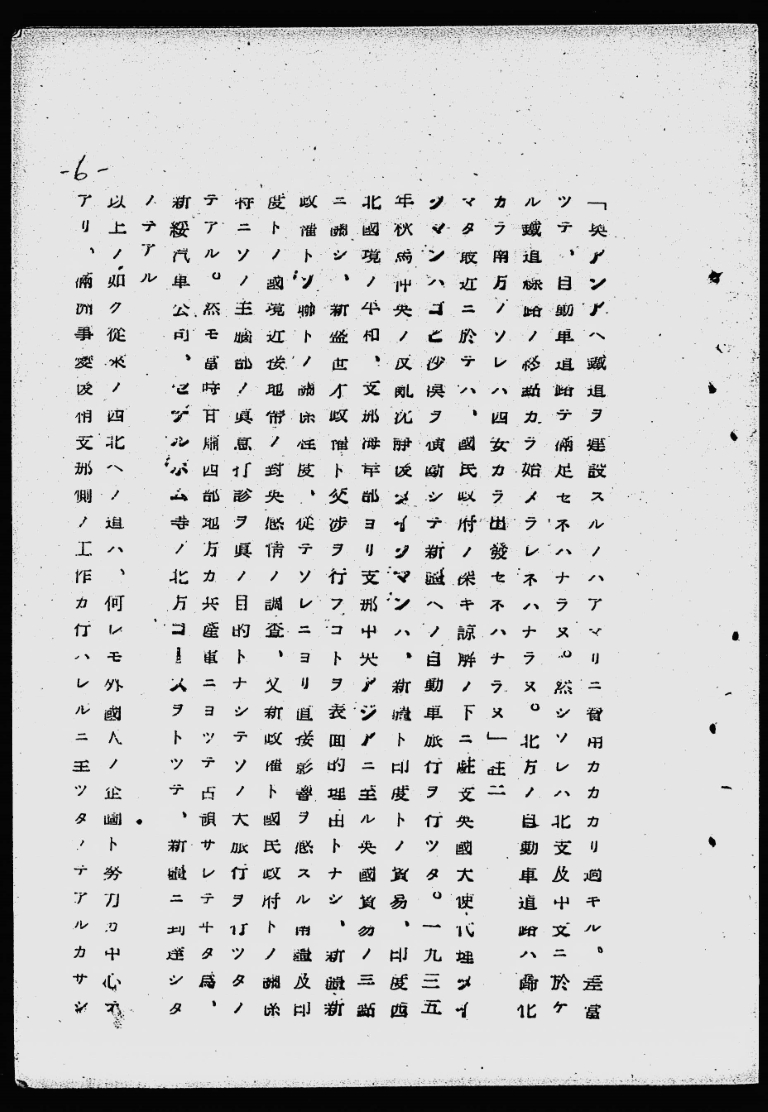 -6-
「奥アジアヘ鐵道ヲ建設スルノハアマリニ費用カカカリ過キル。差當
ツテ、自動車道路テ滿足セネハナラヌ。然シソレハ北支及中支ニ於ケ
ル鐵道線路ノ終點カラ始メラレネハナラヌ。北方ノ自動車道路ハ歸化
カラ南方ノソレハ西安カラ出發セネハナラヌ」註二
マタ最近ニ於テハ、國民政府ノ深キ諒解ノ下ニ駐支英國大使代理タイ
クマンハゴビ沙漠ヲ横斷シテ新疆ヘノ自動車旅行ヲ行ツタ。一九三五
年秋馬仲英ノ反亂沈靜後タイクマンハ、新疆ト印度トノ貿易、印度西
北國境ノ平和、支那海岸部ヨリ支那中央アジアニ至ル英國貿易ノ三點
ニ關シ、新盛世才政權ト交渉ヲ行フコトヲ表面的理由トナシ、新疆新
政權トソ聯トノ關係程度、從テソレニヨリ直接影響ヲ感スル南疆及印
度トノ國境近接地帶ノ封英感情ノ調査、又新政權ト國民政府トノ關係
特ニソノ主腦部ノ眞意打診ヲ眞ノ目的トナシテソノ大旅行ヲ行ツタノ
テアル。然モ當時甘肅西部地方カ共產軍ニヨツテ占領サレテヰタ爲、
新綏汽車公司、セデルボム寺ノ北方コースヲトツテ、新疆ニ到達シタ
ノテアル
以上ノ如ク從來ノ西北ヘノ道ハ、何レモ外國人ノ企圖ト努力カ中心テ
アリ、滿洲事變後稍支那側ノ工作カ行ハレルニ至ツタノテアルカサシ